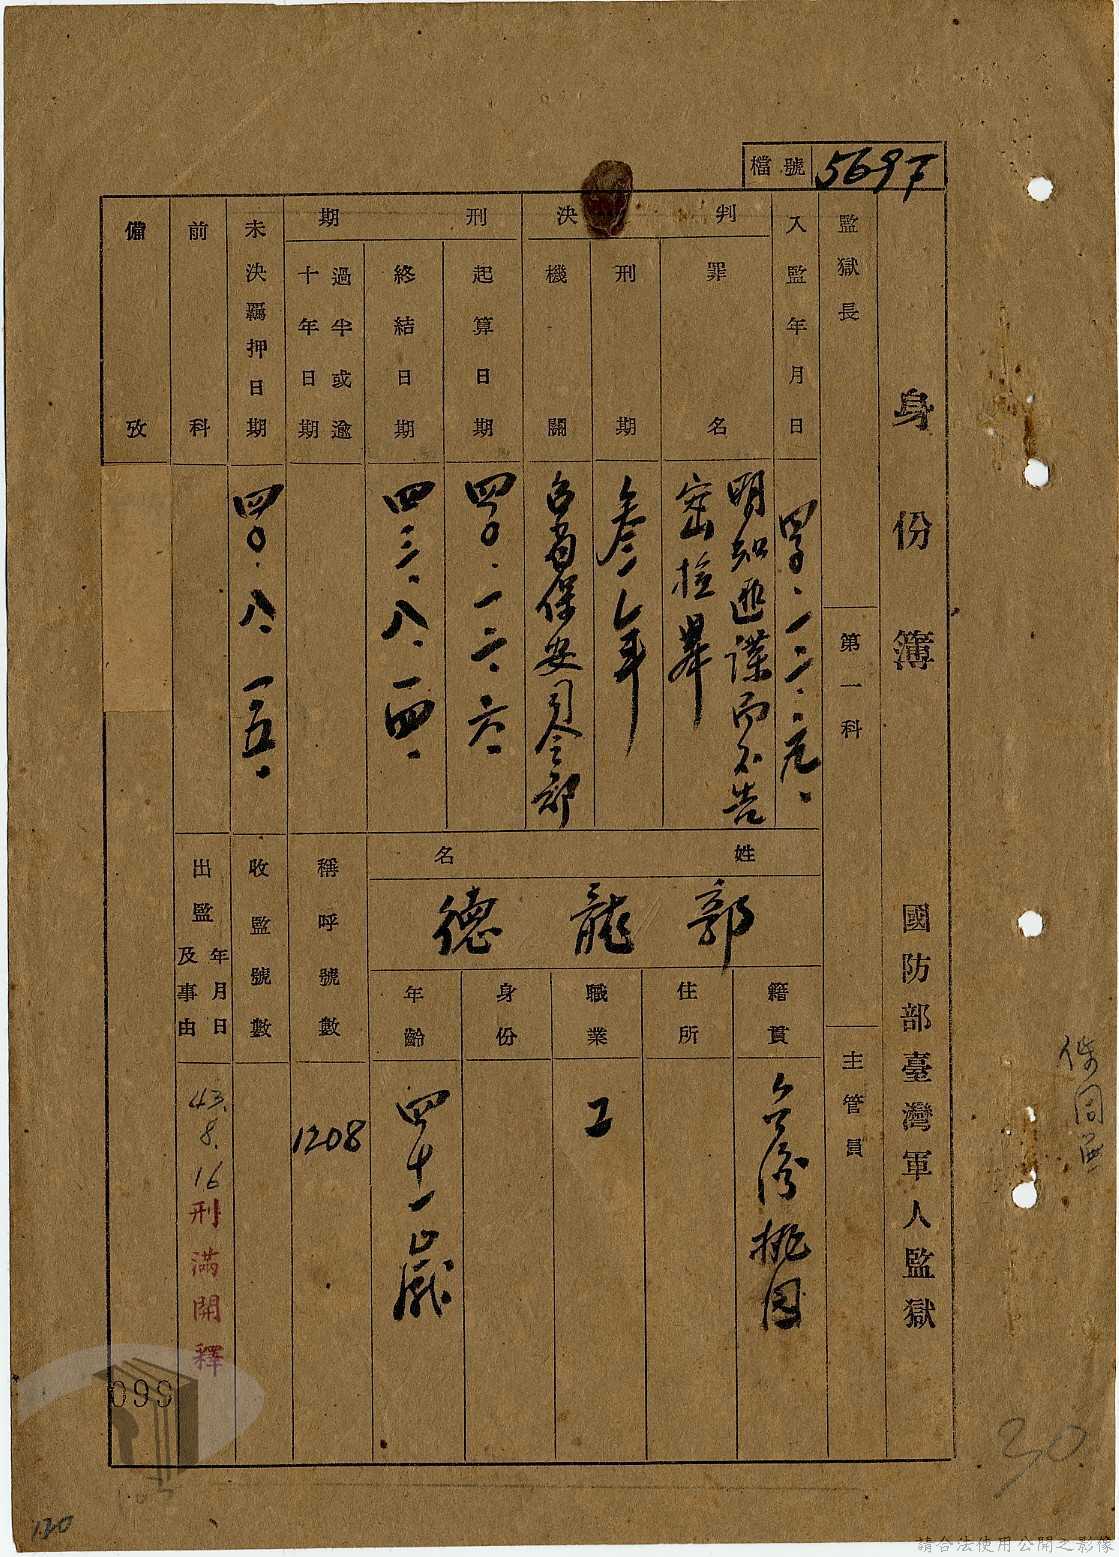 檔號 5697
身份簿 國防部臺灣軍人監獄
監獄長 第一科 主管員
入監年月日
判決
罪名
明知匪諜而不告
密檢舉
刑期
叁年
機關
台省保安司令部
刑期
起算日期
四〇.一二.六.
終結日期
四三.八.一四.
過半或逾
十年日期
未決羈押日期
四〇.八.一五.
前科
備攷
姓名
郭龍德
籍貫
台灣桃園
住所
職業
工
身份
年齡
四十一歲
稱呼號數
1208
收監號數
出監年月日及事由
43.8.16 刑滿開釋
099
30
103
130
請合法使用公開之影像